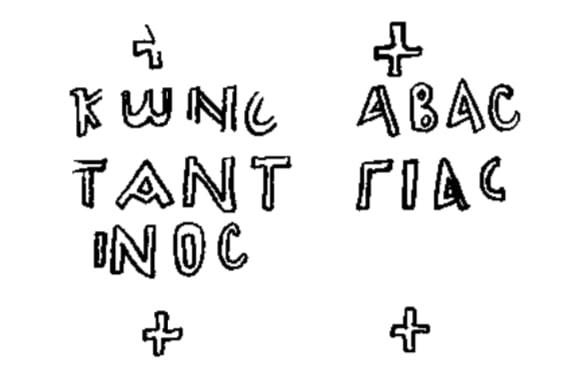 +
ΚωΝϹ
ΤΑΝΤ
ΙΝΟϹ
+
+
ΑΒΑϹ
ΓΙΑϹ
+